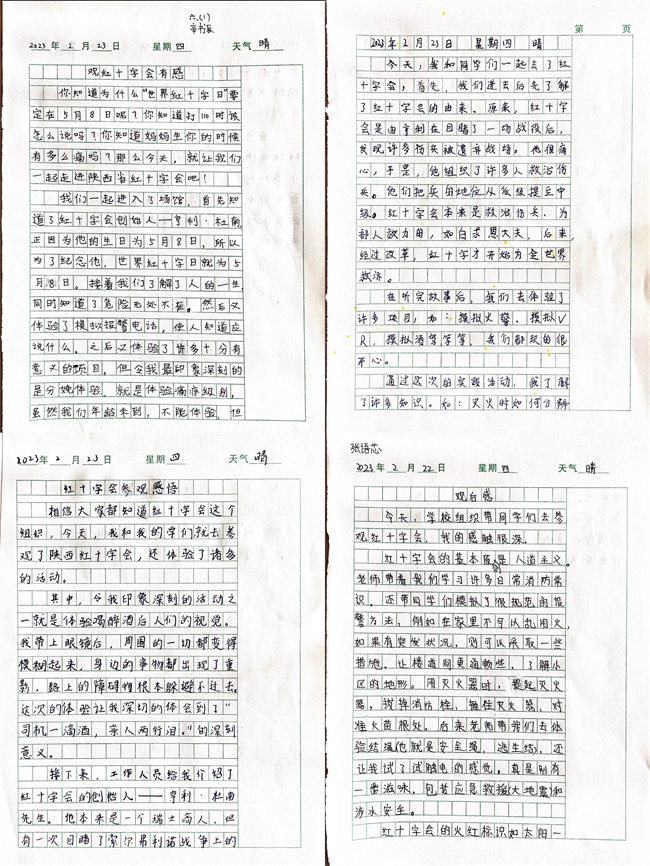 六(1)
2023年2月23日 星期四 天气晴
观红十字会有感
你知道为什么“世界红十字日”要
定在5月8日呢？你知道打110时该
怎么说吗？你知道妈妈生你的时候
有多么痛吗？那么今天，就让我们
一起走进陕西省红十字会吧！
我们一起进入了场馆，首先知
道了红十字会创始人—亨利·杜南，
正因为他的生日为5月8日，所以
为了纪念他，世界红十字日就为5
月8日。接着我们了解了人的一生，
同时知道了危险无处不在。然后又
体验了模拟报警电话，使人知道应
说什么。之后又体验了许多十分有
意义的项目，但令我最印象深刻的
是分娩体验，就是体验痛疼级别，
虽然我们年龄未到，不能体验，但
第 页
2023年2月23日 星期四 晴
今天，我和同学们一起去了红
十字会，首先，我们进去后先了解
了红十字会的由来。原来，红十字
会是由亨利在目睹了一场战役后，
发现许多伤员被遗弃战场。他很痛
心，于是，他组织了许多人救治伤
兵。他们把兵的地位从低级提至中
级。红十字会本来是救治伤兵、为
部人效力的，如白求恩大夫，后来，
经过改革，红十字才开始为全世界
救济。
在听完故事后，我们去体验了
许多项目，如：模拟火警、模拟V
R，模拟酒驾等等，我们都玩的很
开心。
通过这次的实践活动，我了解
了许多知识。如：灭火时如何分辨
2023年2月23日 星期四 天气晴
红十字会参观感悟
相信大家都知道红十字会这个
组织，今天，我和我的学们就去参
观了陕西红十字会，还体验了诸多
的活动。
其中，令我印象深刻的活动之
一就是体验喝醉酒后人们的视觉。
我带上眼镜后，周围的一切都变得
模糊起来，身边的事物都出现了重
影，路上的障碍物根本躲避不过去。
这次的体验让我深切的体会到了“
司机一滴酒，亲人两行泪。”的深刻
意义。
接下来，工作人员给我介绍了
红十字会的创始人——亨利·杜南
先生。他本来是一个瑞士商人，但
有一次目睹了索尔弗利诺战争上的
张语芯
2023年2月22日 星期四 天气晴
观后感
今天，学校组织带同学们去参
观红十字会，我的感触很深。
红十字会的基本原则是人道主义。
老师带着我们学习许多日常消防常
识。还带同学们模拟了很规范的报
警方法，例如在家里不可以乱用火，
如果有突发状况，则可以采取一些
措施。让楼道间更通畅些，了解小
区的地形。用灭火器时，要起灭火
器，拔掉消防栓，握住灭火器、对
准火苗根处。后来老师带我们去体
验结绳(也就是安全绳，逃生结)，还
让我试了试触电的感觉，真是别有
一番滋味，包括应急救援(大地震)和
防水安全。
红十字会的火红标识如太阳一